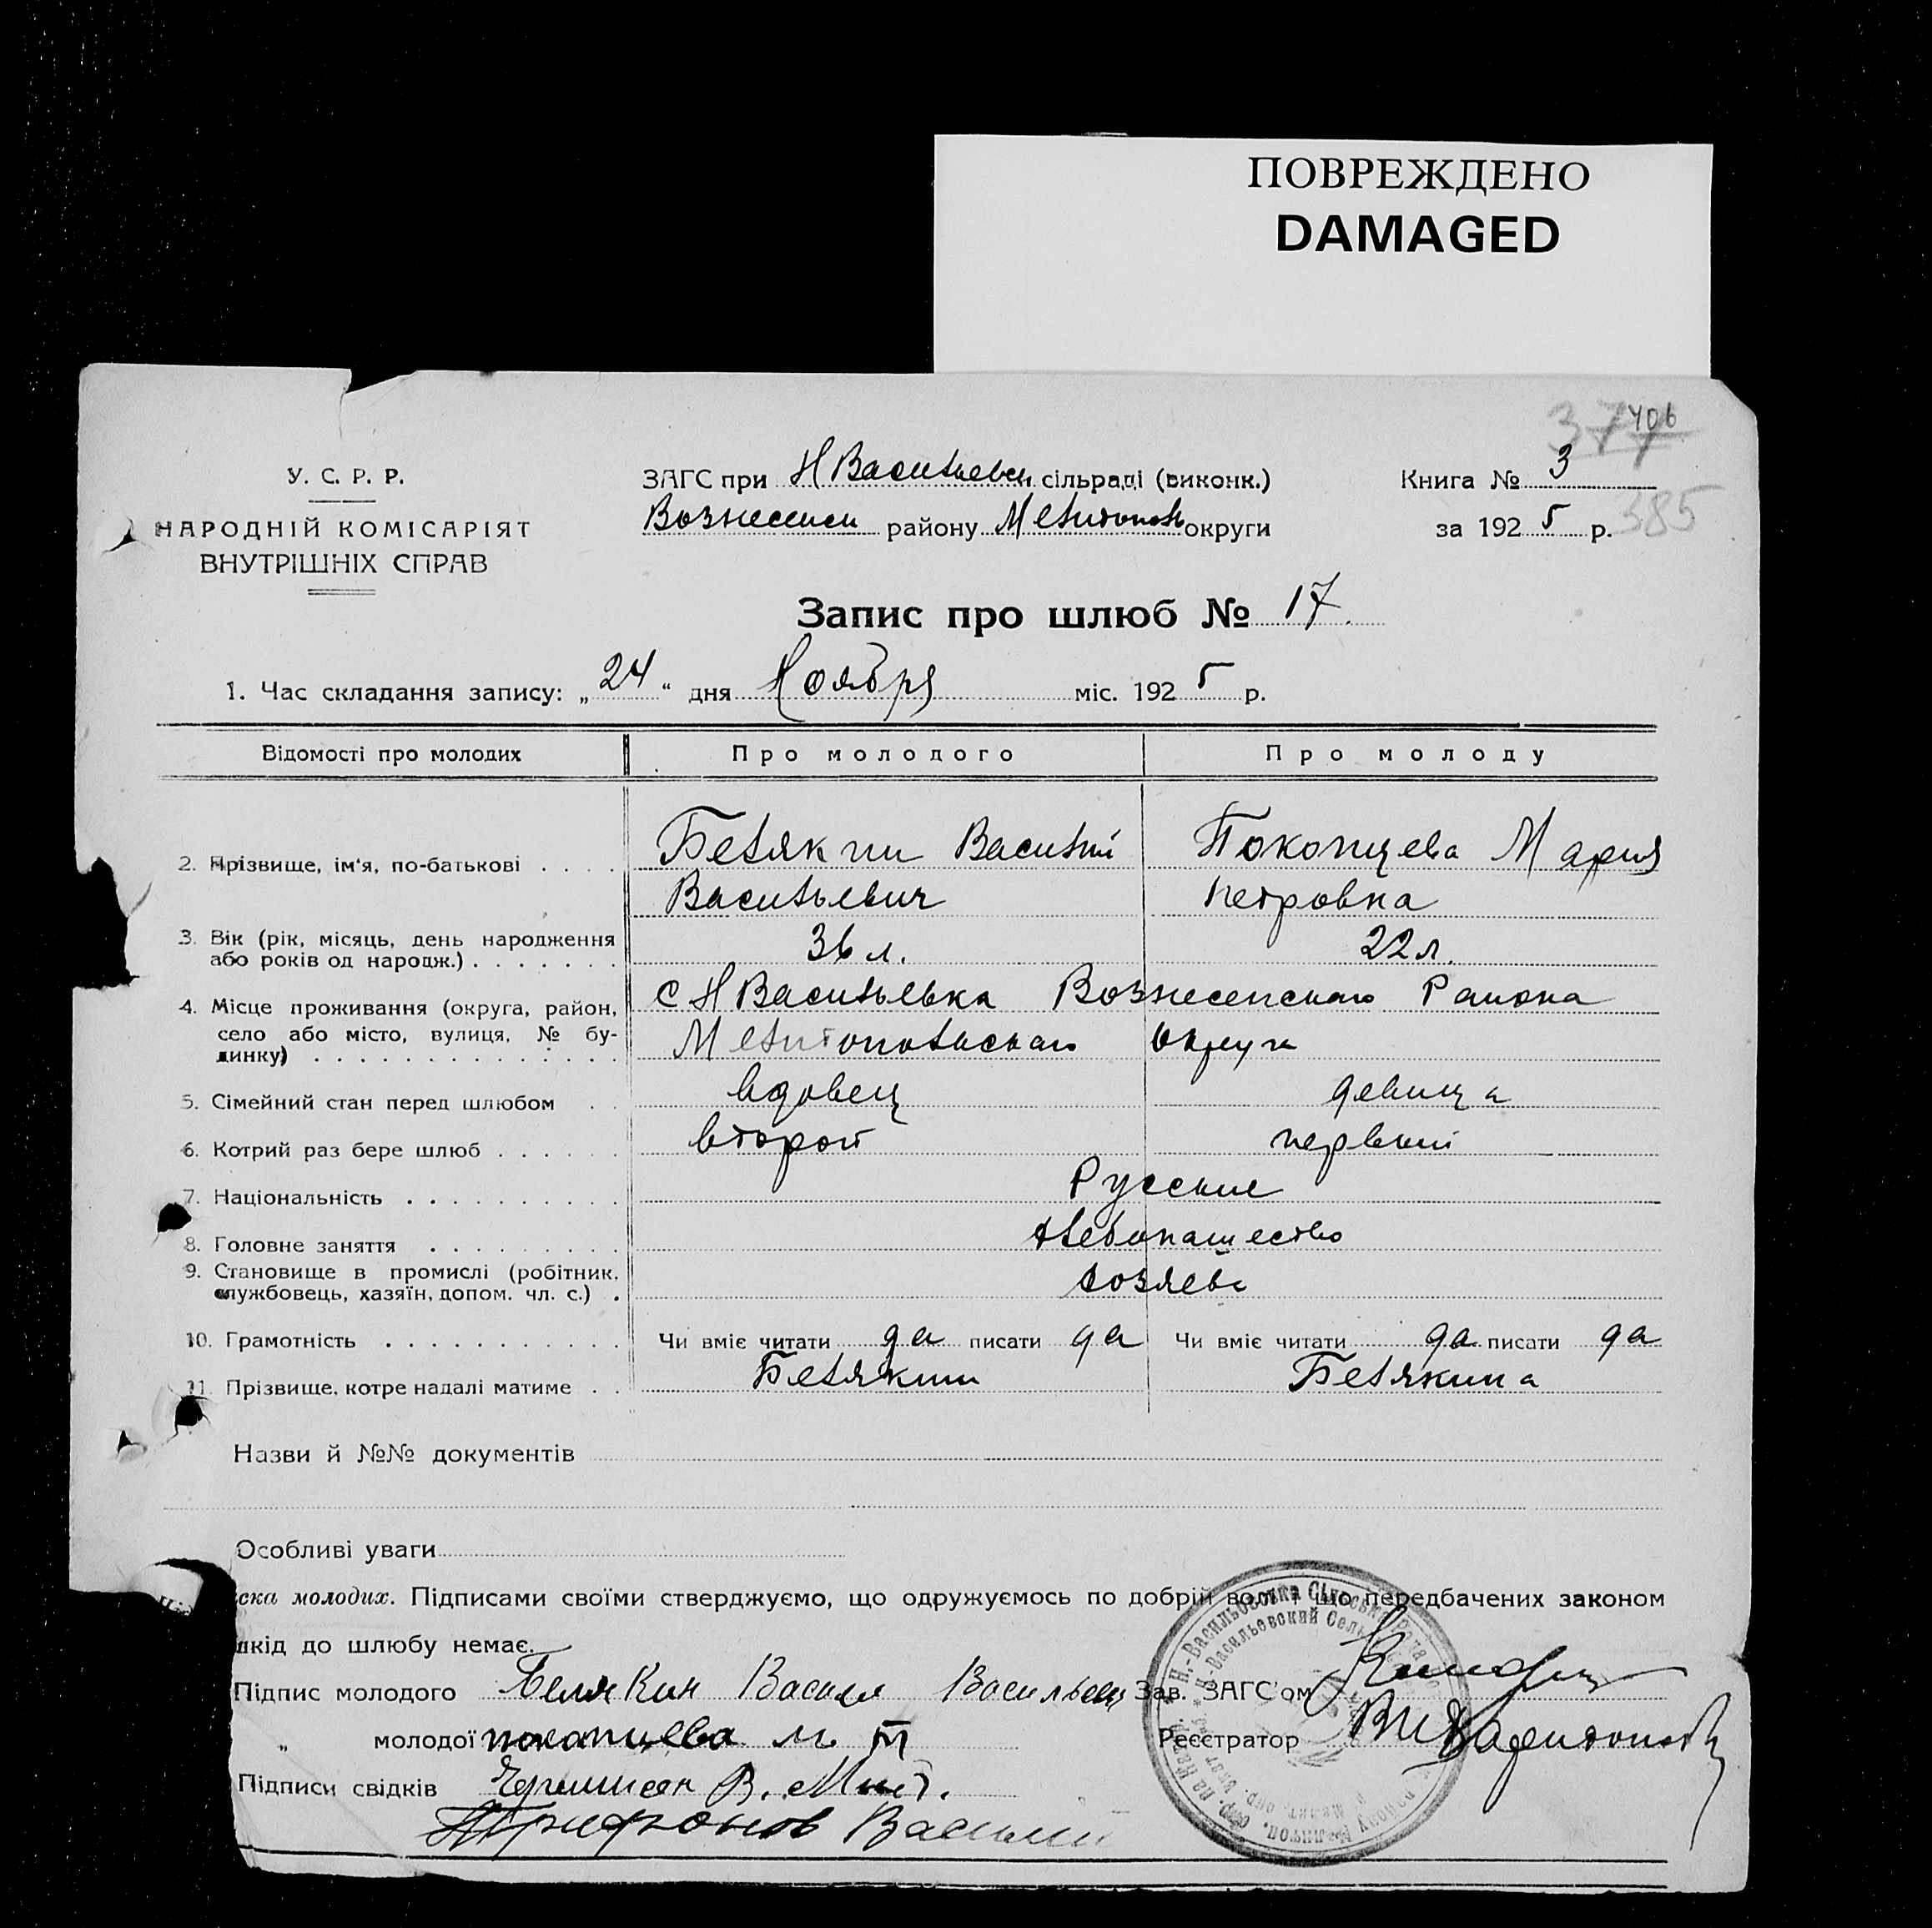 ПОВРЕЖДЕНО
DAMAGED
377 406
385
У. С. Р. Р.
НАРОДНІЙ КОМІСАРІЯТ
ВНУТРІШНІХ СПРАВ
ЗАГС при Н Васильевск сільраді (виконк.)
Вознесенск району Мелитополь округи
Книга № 3
за 192 5 р.
Запис про шлюб № 17.
1. Час складання запису: „ 24 “ дня Ноября міс. 192 5 р.
Відомості про молодих Про молодого Про молоду
2. Прізвище, ім'я, по-батькові . . . . Белякин Василий Покопцева Мария
Васильевич Петровна
3. Вік (рік, місяць, день народження
або років од народж.) . . . . . . . 36 л. 22 л.
4. Місце проживання (округа, район,
село або місто, вулиця, № бу-
динку) . . . . . . . . . . . . . .
с Н Васильевка Вознесенскаго Района
Мелитопольскаго Округа
5. Сімейний стан перед шлюбом . . вдовец девица
6. Котрий раз бере шлюб . . . . . . второй первый
7. Національність . . . . . . . . . . Русские
8. Головне заняття . . . . . . . . . Хлебопашество
9. Становище в промислі (робітник,
службовець, хазяїн, допом. чл. с.) . хозяева
10. Грамотність . . . . . . . . . . . Чи вміє читати да писати да Чи вміє читати да писати да
11. Прізвище, котре надалі матиме . . Белякин Белякина
Назви й №№ документів
Особливі уваги
ска молодих. Підписами своїми стверджуємо, що одружуємось по добрій волі і що передбачених законом
шкід до шлюбу немає.
Підпис молодого Белякин Васили Васильевич Зав. ЗАГС'ом
„ молодої покопцева м. П Реєстратор
Підписи свідків В.
Трифонов Василий